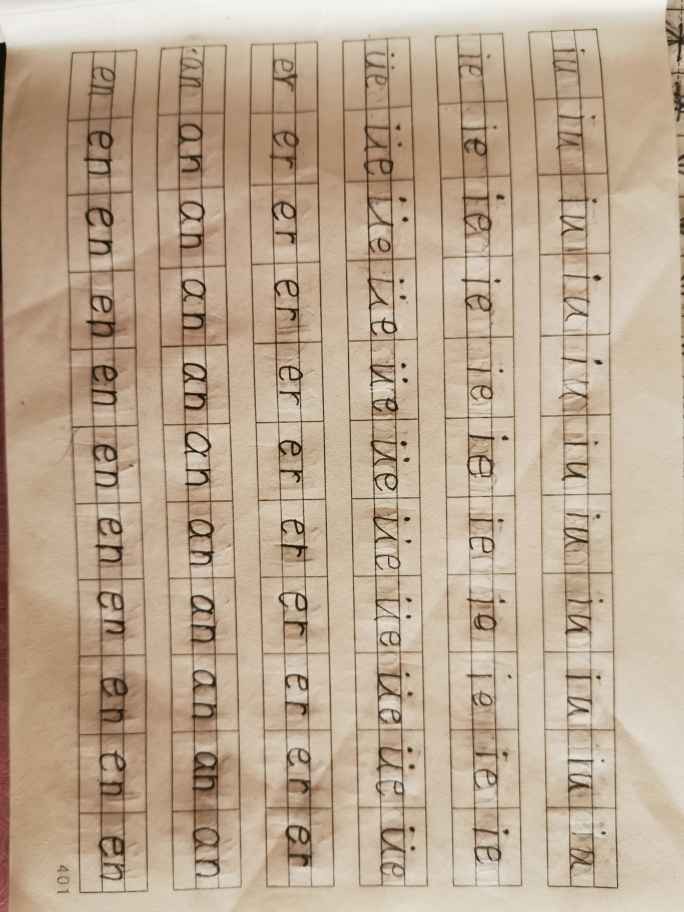 iu iu iu iu iu iu iu iu iu iu iu
ie ie ie ie ie ie ie ie ie ie ie
üe üe üe üe üe üe üe üe üe üe üe
er er er er er er er er er er er
an an an an an an an an an an an
en en en en en en en en en en en
401